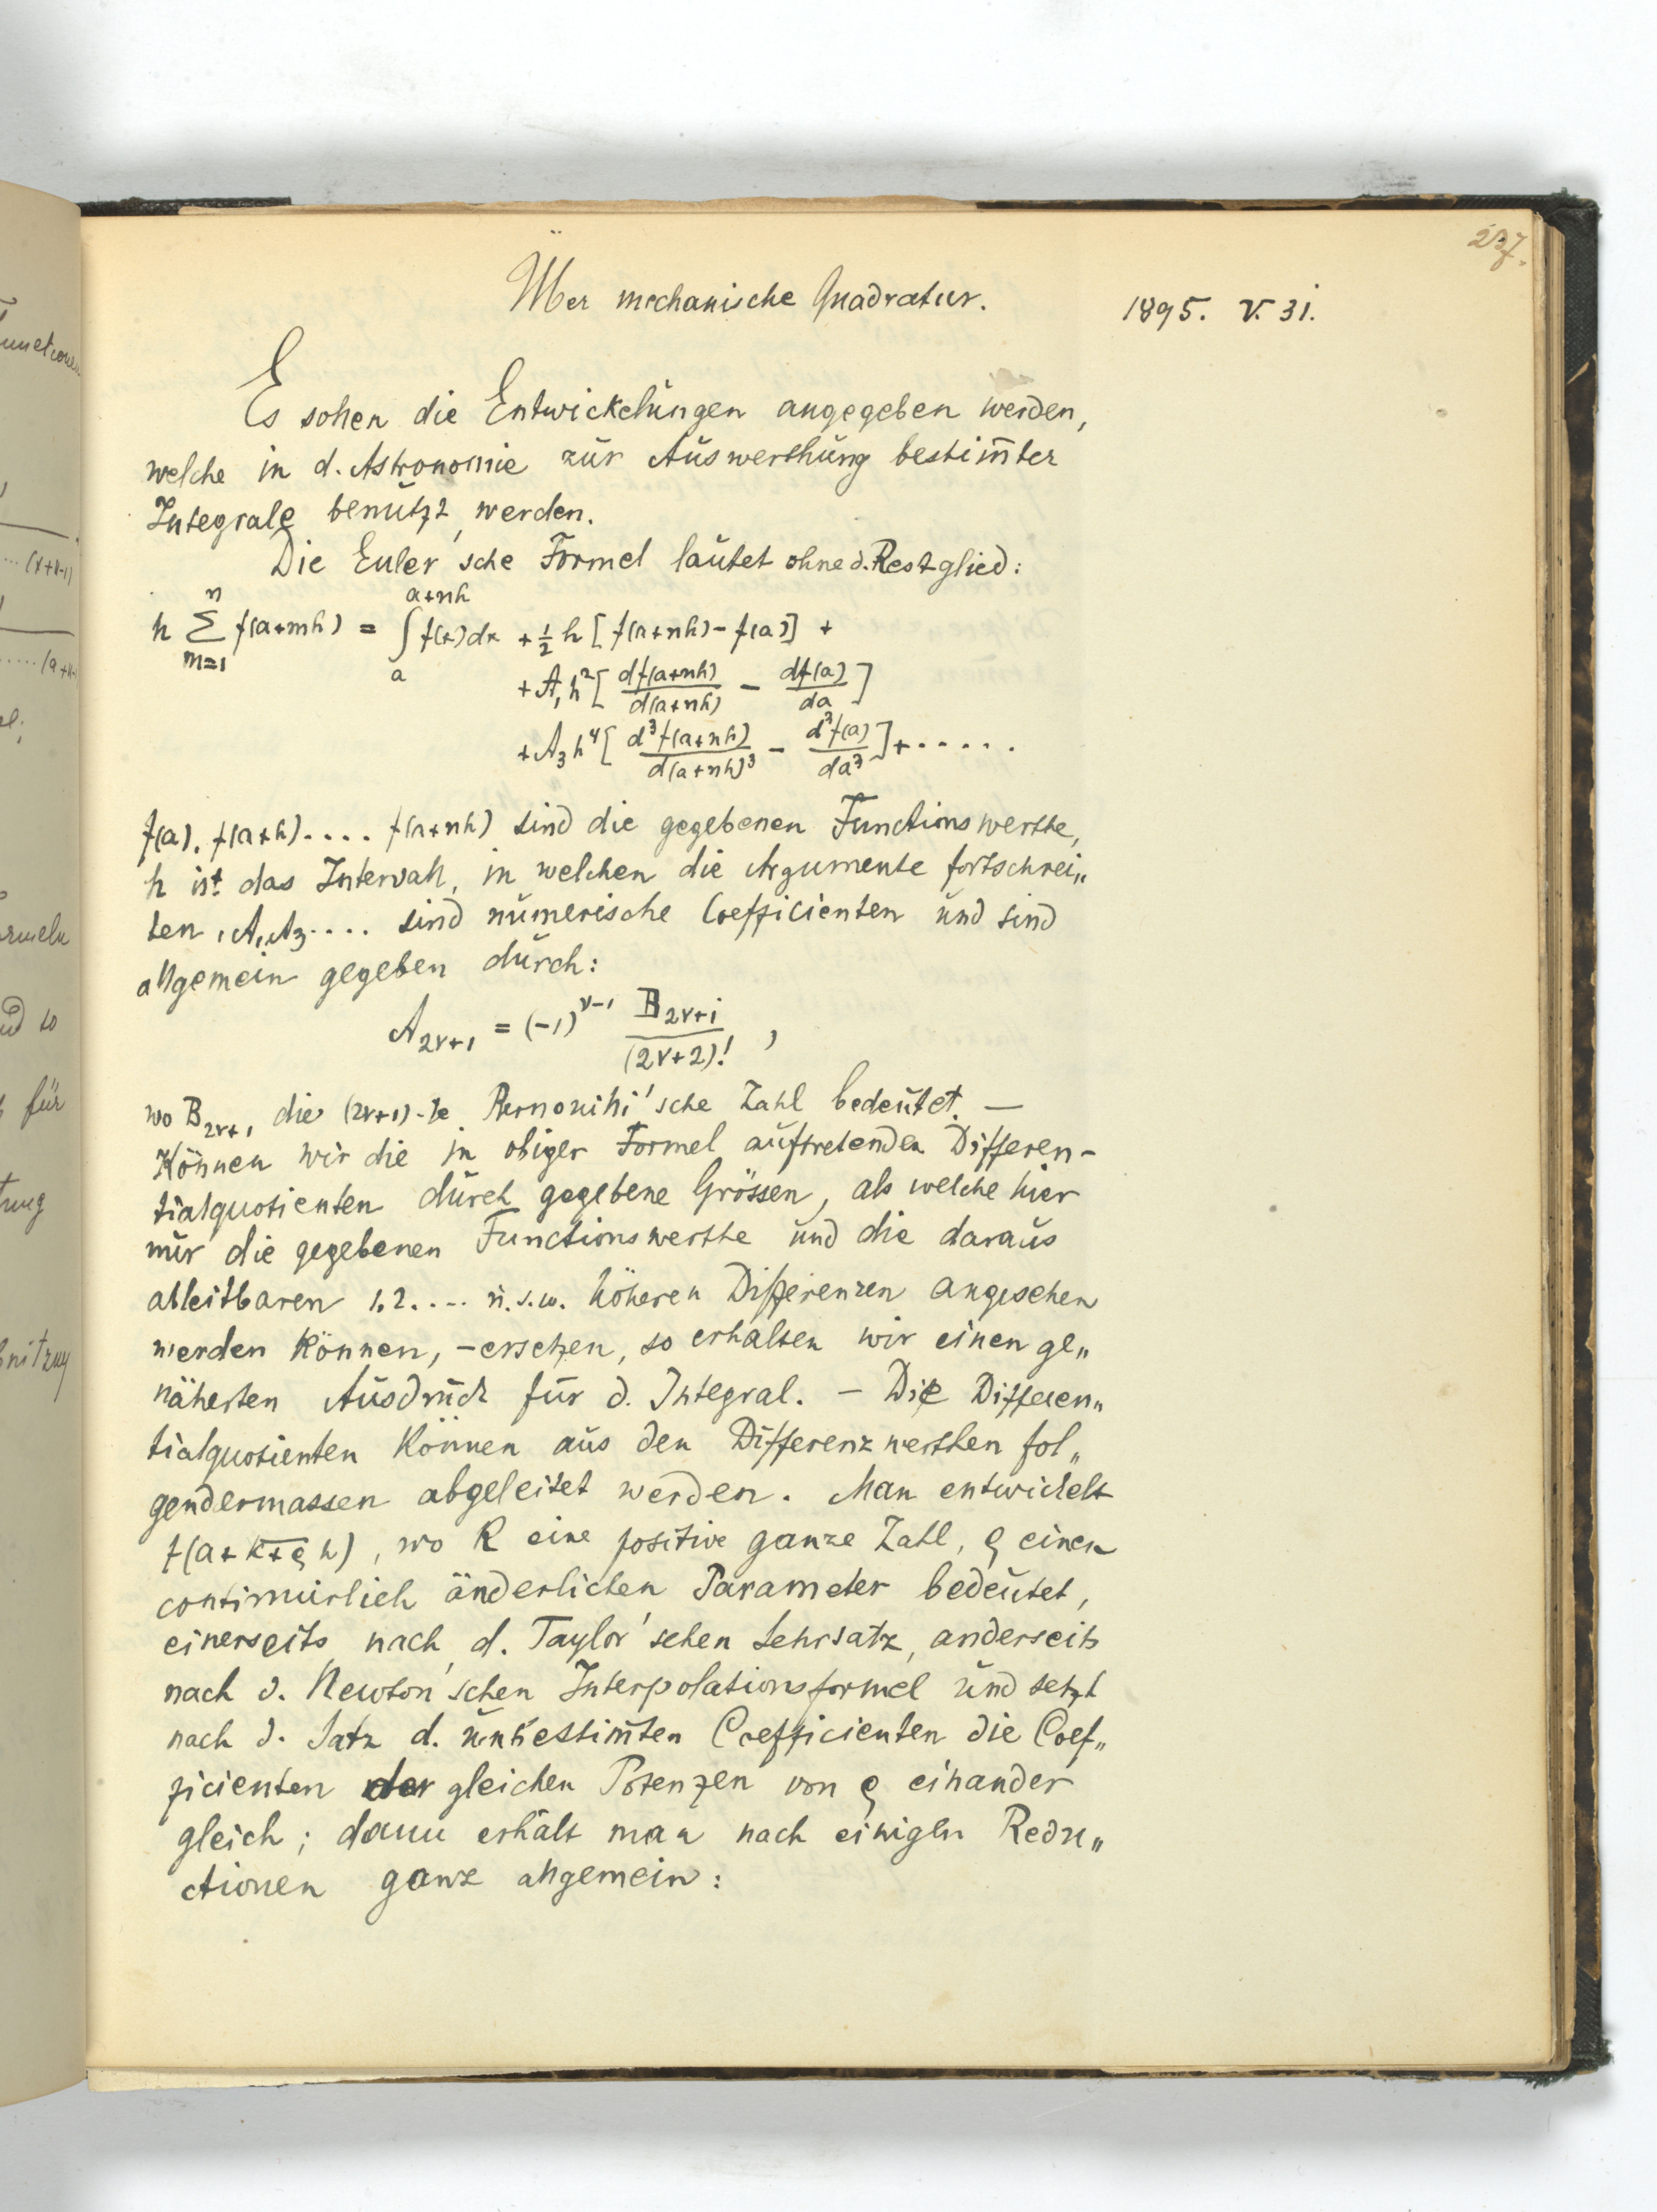 237.
Über mechanische Quadratur.
1895. V. 31.
Es sollen die Entwickelungen angegeben werden,
welche in d. Astronomie zur Auswerthung bestim̅ter
Integrale benützt werden.
Die Euler'sche Formel lautet ohne d. Restglied:
h Σ_{m=1}^{n} f(a+mh) = ∫_{a}^{a+nh} f(x)dx + 1/2 h [f(a+nh) - f(a)] +
+ A₁h² [df(a+nh)/d(a+nh) - df(a)/da]
+ A₃h⁴ [d³f(a+nh)/d(a+nh)³ - d³f(a)/da³] + .....
f(a), f(a+h).... f(a+nh) sind die gegebenen Functionswerthe,
h ist das Intervall, in welchen die Argumente fortschrei„
ten, A₁, A₃.... sind numerische Coefficienten und sind
allgemein gegeben durch:
A_{2ν+1} = (-1)^{ν-1} B_{2ν+1}/(2ν+2)! ,
wo B_{2ν+1} die (2ν+1)-te Bernoulli'sche Zahl bedeutet. —
Können wir die in obiger Formel auftretenden Differen-
tialquotienten durch gegebene Grössen, als welche hier
nur die gegebenen Functionswerthe und die daraus
ableitbaren 1, 2.... u.s.w. höheren Differenzen angesehen
werden können, - ersetzen, so erhalten wir einen ge„
näherten Ausdruck für d. Integral. — Die Differen„
tialquotienten können aus den Differenzwerthen fol„
gendermassen abgeleitet werden. Man entwickelt
f(a + k̅+̅ϱ̅ h), wo k eine positive ganze Zahl, ϱ einen
continuirlich änderlichen Parameter bedeutet,
einerseits nach d. Taylor'schen Lehrsatz, anderseits
nach d. Newton'schen Interpolationsformel und setzt
nach d. Satz d. unbestim̅ten Coefficienten die Coef„
ficienten der gleichen Potenzen von ϱ einander
gleich; dann erhält man nach einigen Redu„
ctionen ganz allgemein: